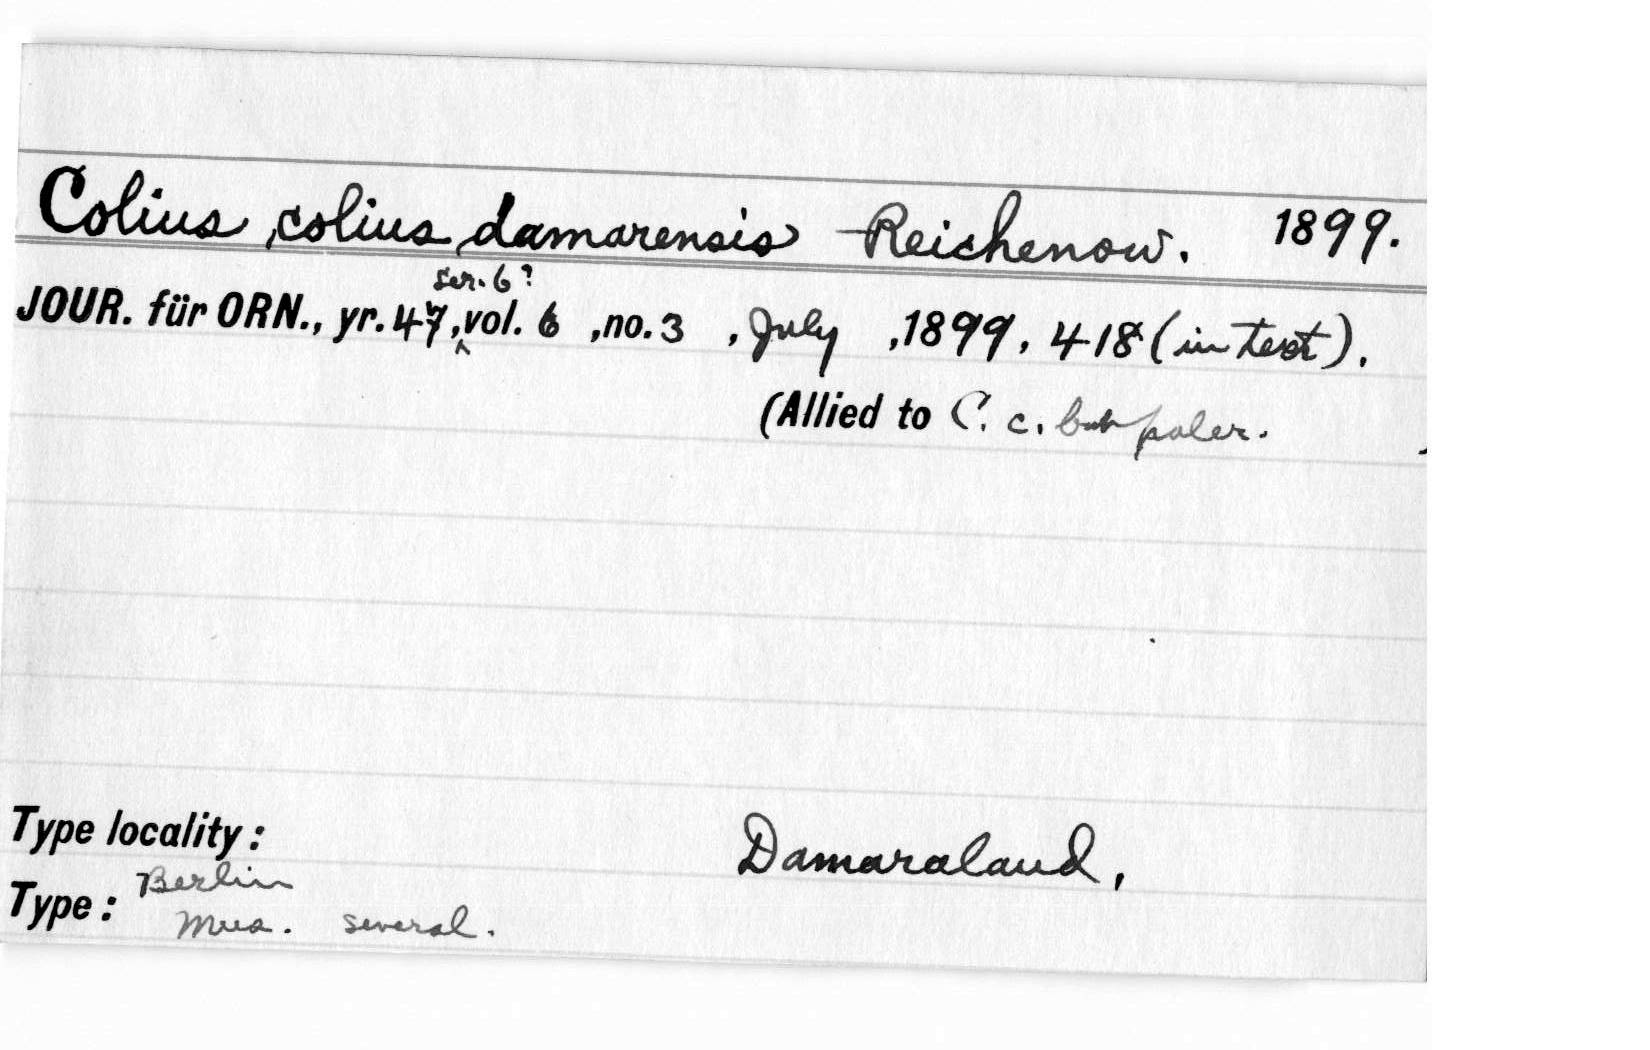 Colius colius damarensis Reichenow. 1899.
ser. 6?
JOUR. für ORN., yr. 47, vol. 6 , no. 3 , July , 1899, 418 (in text).
(Allied to C. c. but paler. )
Type locality: Damaraland,
Berlin
Type: Mus. several.